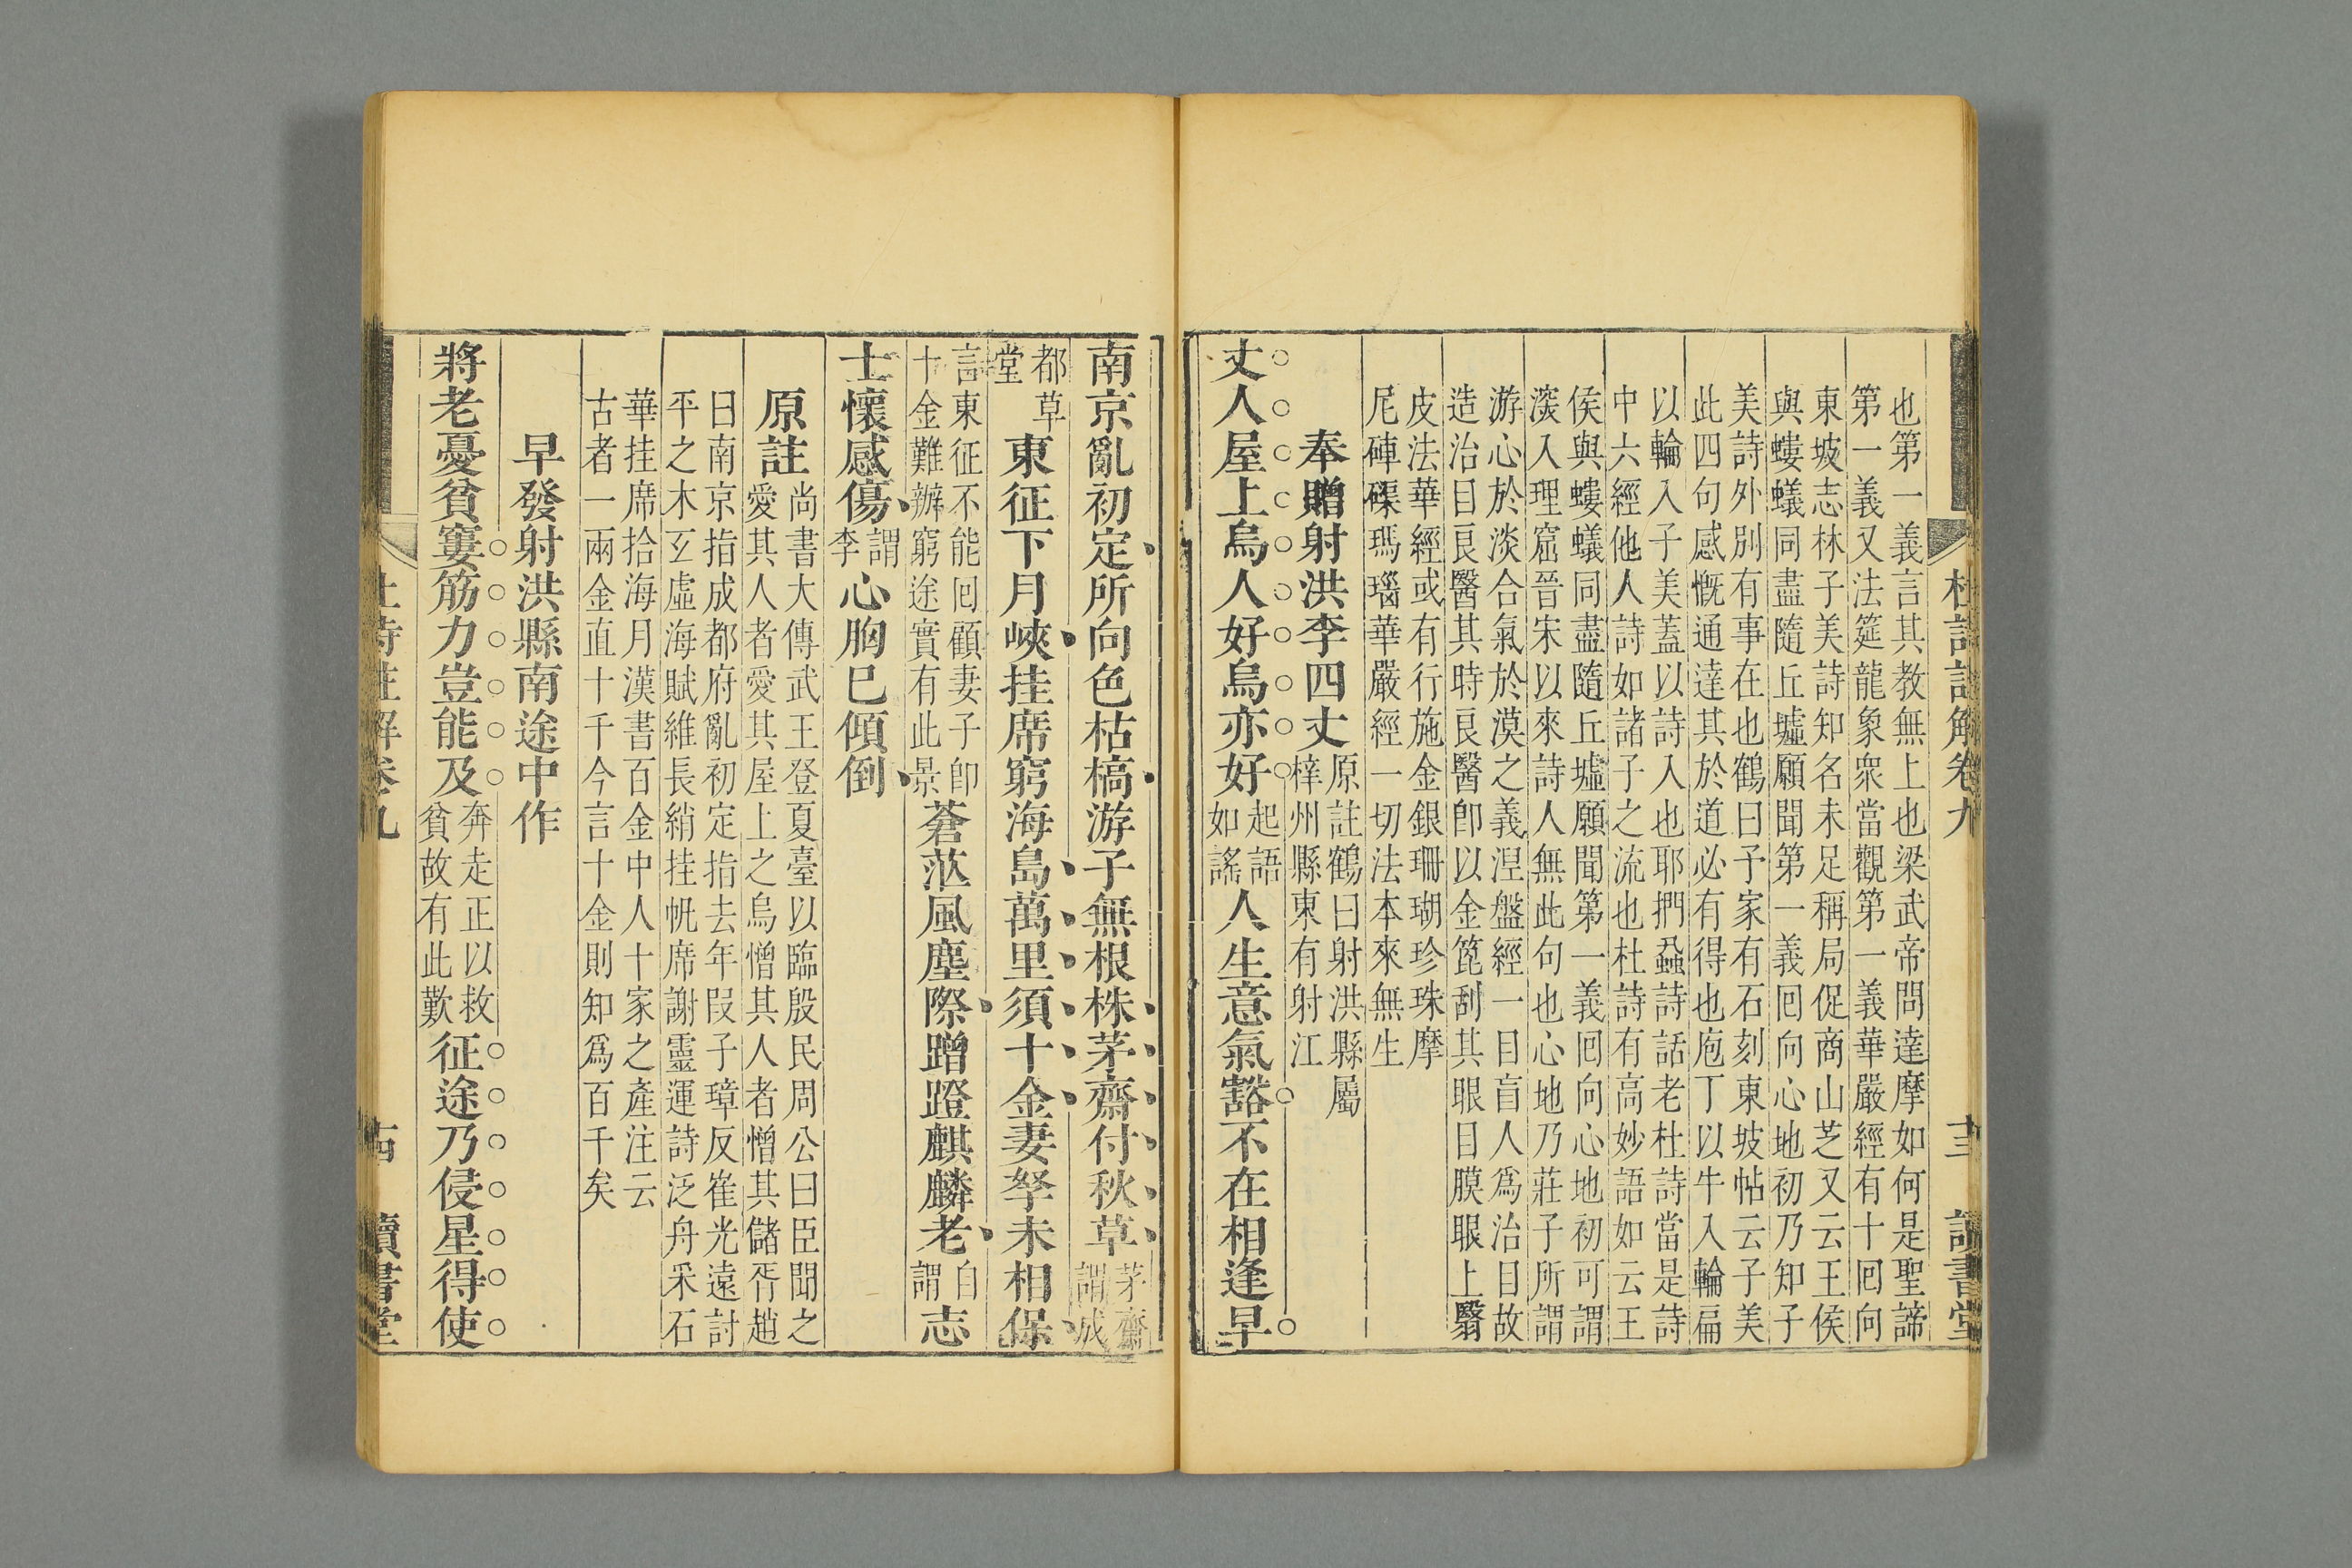 杜詩註解卷九 十三 讀書堂
也第一義言其教無上也梁武帝問達摩如何是聖諦
第一義又法筵龍象衆當觀第一義華嚴經有十囘向
東坡志林子美詩知名未足稱局促商山芝又云王侯
與螻蟻同盡隨丘墟願聞第一義囘向心地初乃知子
美詩外别有事在也鶴曰予家有石刻東坡帖云子美
此四句感慨通達其於道必有得也庖丁以牛入輪扁
以輪入子美蓋以詩入也耶捫蝨詩話老杜詩當是詩
中六經他人詩如諸子之流也杜詩有高妙語如云王
侯與螻蟻同盡隨丘墟願聞第一義囘向心地初可謂
深入理窟晉宋以來詩人無此句也心地乃莊子所謂
游心於淡合氣於漠之義涅盤經一目盲人爲治目故
造治目良醫其時良醫卽以金箆刮其眼目膜眼上翳
皮法華經或有行施金銀珊瑚珍珠摩
尼硨磲瑪瑙華嚴經一切法本來無生
奉贈射洪李四丈
原註鶴曰射洪縣屬
梓州縣東有射江
丈人屋上烏人好烏亦好
起語
如謠
人生意氣豁不在相逢早
南京亂初定所向色枯槁游子無根株茅齋付秋草
茅齋
謂成
都草
堂
東征下月峽挂席窮海島萬里須十金妻孥未相保
言東征不能囘顧妻子卽
十金難辦窮途實有此景
蒼茫風塵際蹭蹬麒麟老
自
謂
志
士懷感傷
謂
李
心胸已傾倒
原註
尚書大傳武王登夏臺以臨殷民周公曰臣聞之
愛其人者愛其屋上之烏憎其人者憎其儲胥趙
曰南京指成都府亂初定指去年叚子璋反崔光遠討
平之木玄虛海賦維長綃挂帆席謝靈運詩泛舟采石
華挂席拾海月漢書百金中人十家之產注云
古者一兩金直十千今言十金則知爲百千矣
早發射洪縣南途中作
將老憂貧窶筋力豈能及
奔走正以救
貧故有此歎
征途乃侵星得使
杜詩註解卷九 十四 讀書堂